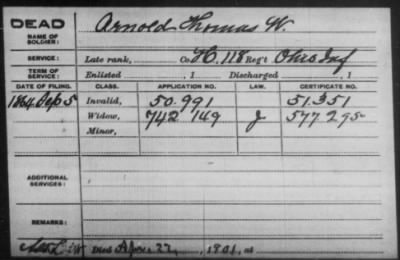 DEAD
NAME OF SOLDIER: Arnold Thomas W.
SERVICE: Late rank, Co. H, 118 Reg't Ohio Inf
TERM OF SERVICE: Enlisted , 1 Discharged , 1
DATE OF FILING. CLASS. APPLICATION NO. LAW. CERTIFICATE NO.
1864 Sep 5 Invalid, 50.991 51.351
Widow, 742 149 J 577 295
Minor,
ADDITIONAL SERVICES:
REMARKS:
Died Apr. 22, 1801, at